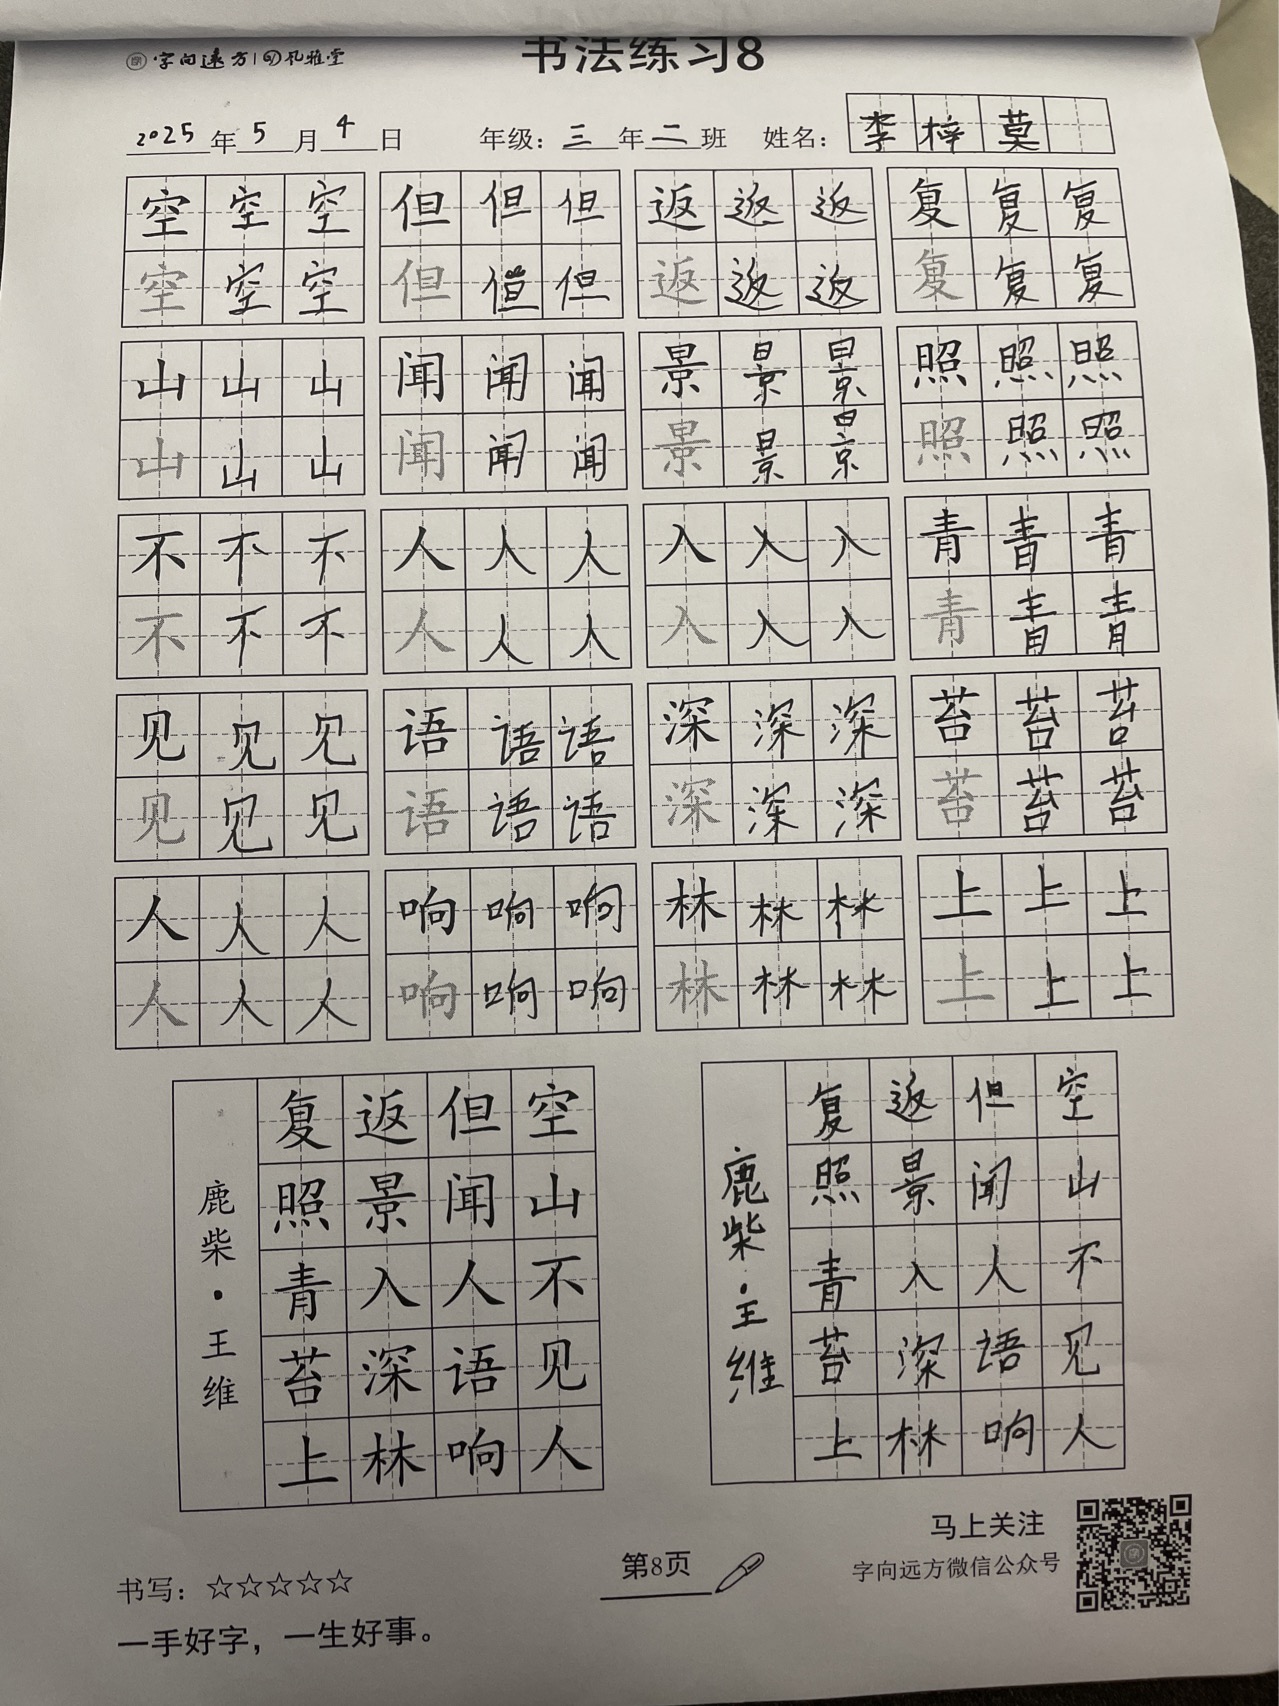 字向遠方 风雅堂
书法练习8
2025年5月4日 年级：三年二班 姓名：李梓莫
空空空 但但但 返返返 复复复
空空空 但但但 返返返 复复复
山山山 闻闻闻 景景景 照照照
山山山 闻闻闻 景景景 照照照
不不不 人人人 入入入 青青青
不不不 人人人 入入入 青青青
见见见 语语语 深深深 苔苔苔
见见见 语语语 深深深 苔苔苔
人人人 响响响 林林林 上上上
人人人 响响响 林林林 上上上
空山不见人
但闻人语响
返景入深林
复照青苔上
鹿柴·王维
空山不见人
但闻人语响
返景入深林
复照青苔上
鹿柴·王维
书写：☆☆☆☆☆
一手好字，一生好事。
第8页
马上关注
字向远方微信公众号